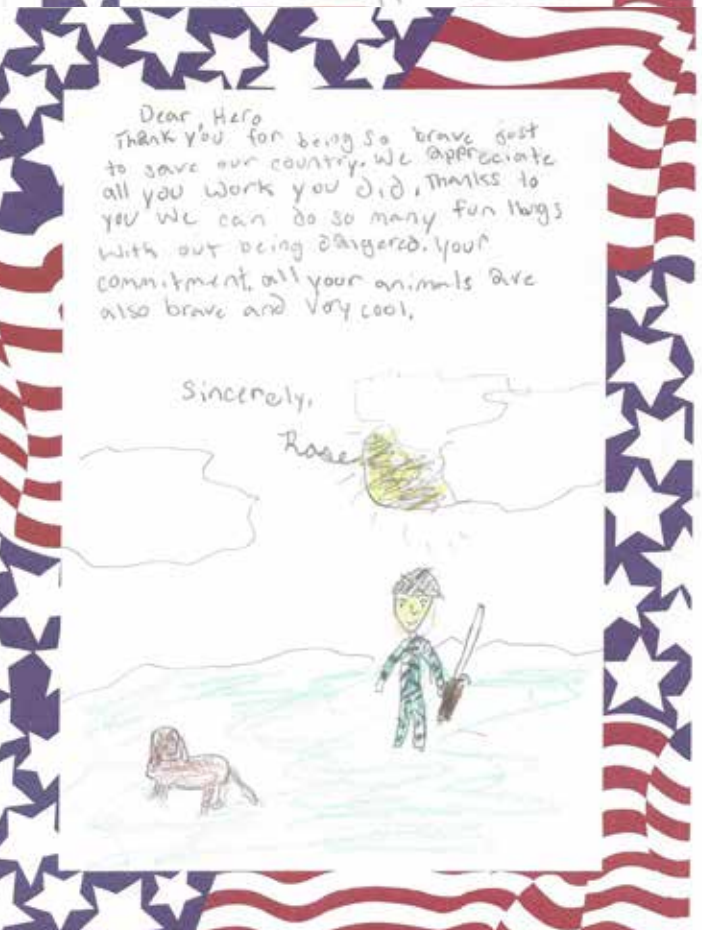 Dear, Hero
Thank you for being so brave just
to save our country. We appreciate
all you work you did. Thanks to
you we can do so many fun thugs
with out being dangered. your
commitment. all your animals are
also brave and very cool.
Sincerely,
Rose